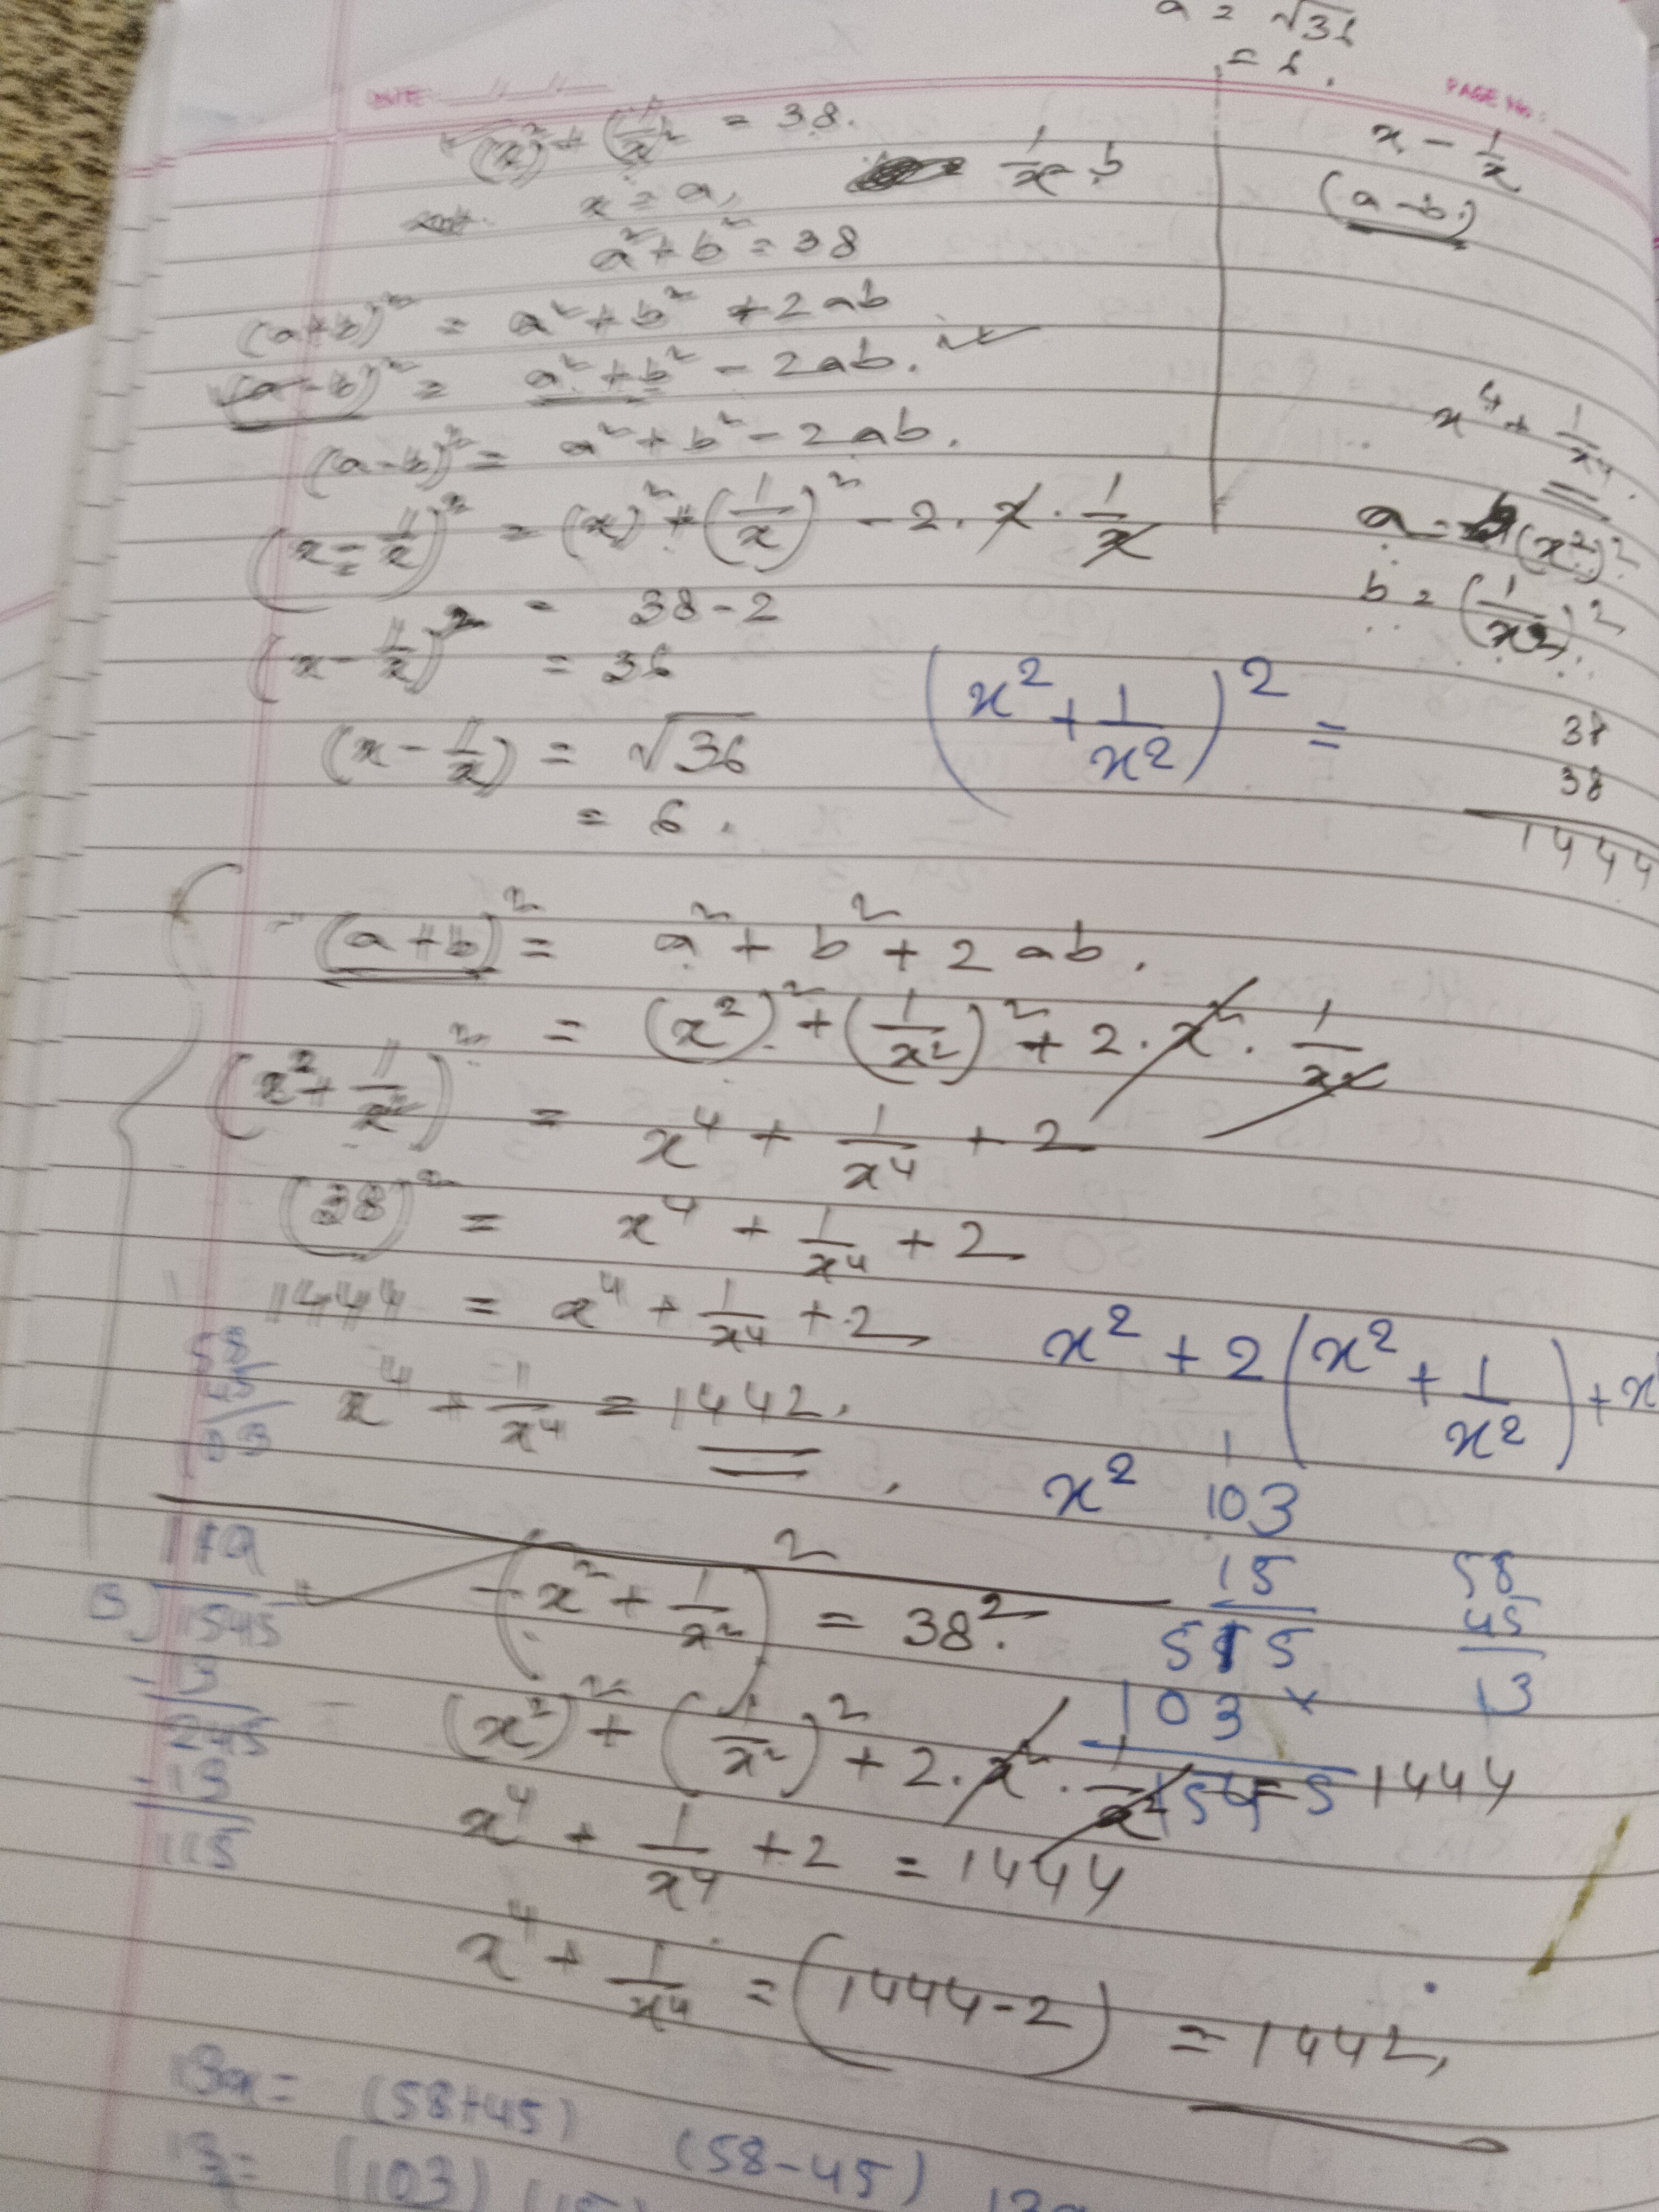 a = √36
= 6.
DATE: __/__/__
PAGE NO.:
(x)² + (1/x)² = 38.
x = a, 1/x = b
a² + b² = 38
(a+b)² = a² + b² + 2ab
(a-b)² = a² + b² - 2ab.
(a-b)² = a² + b² - 2ab.
(x - 1/x)² = (x)² + (1/x)² - 2. x . 1/x
= 38-2
(x - 1/x)² = 36
(x - 1/x) = √36
= 6.
x - 1/x
(a-b)
x⁴ + 1/x⁴.
a = (x²)²
b = (1/x²)².
(x² + 1/x²)² =
38
38
1444
(a+b)² = a² + b² + 2ab.
= (x²)² + (1/x²)² + 2. x² . 1/x²
(x² + 1/x²)² = x⁴ + 1/x⁴ + 2
(38)² = x⁴ + 1/x⁴ + 2
1444 = x⁴ + 1/x⁴ + 2
x⁴ + 1/x⁴ = 1442.
x² + 2(x² + 1/x²) + x
x²
58
45
1
103
15
515
103 ×
1545
58
45
13
(x² + 1/x²)² = 38².
(x²)² + (1/x²)² + 2. x² . 1/x² = 1444
x⁴ + 1/x⁴ + 2 = 1444
x⁴ + 1/x⁴ = (1444-2) = 1442,
1545
245
115
(58+45) (58-45)
(103)